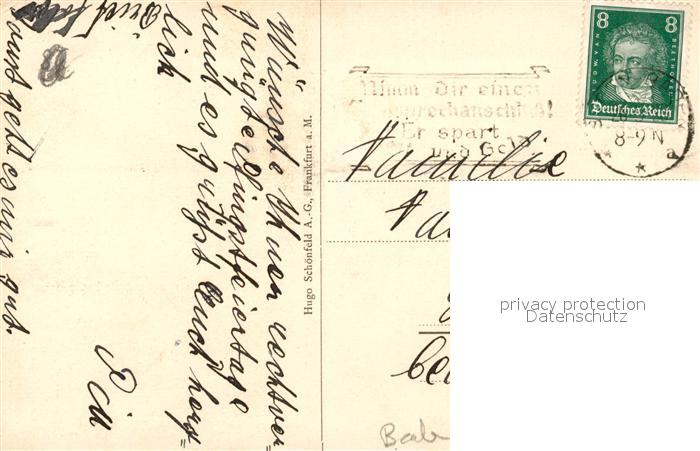 Wünsche Ihnen recht ver=
gnügte Pfingstfeiertage
und es grüßt Euch herz=
lich
Brief
sonst geht es mir gut.
Hugo Schönfeld A.-G., Frankfurt a. M.
Nimm dir einen
Sprechanschluß!
Er spart
und Geld
8 8
LUDW. VAN BEETHOVEN
Deutsches Reich
8-9 N
* * a
Familie
bei
privacy protection
Datenschutz